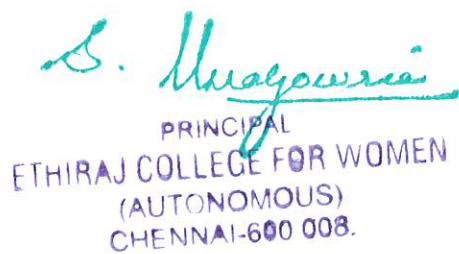 S.
PRINCIPAL
ETHIRAJ COLLEGE FOR WOMEN
(AUTONOMOUS)
CHENNAI-600 008.